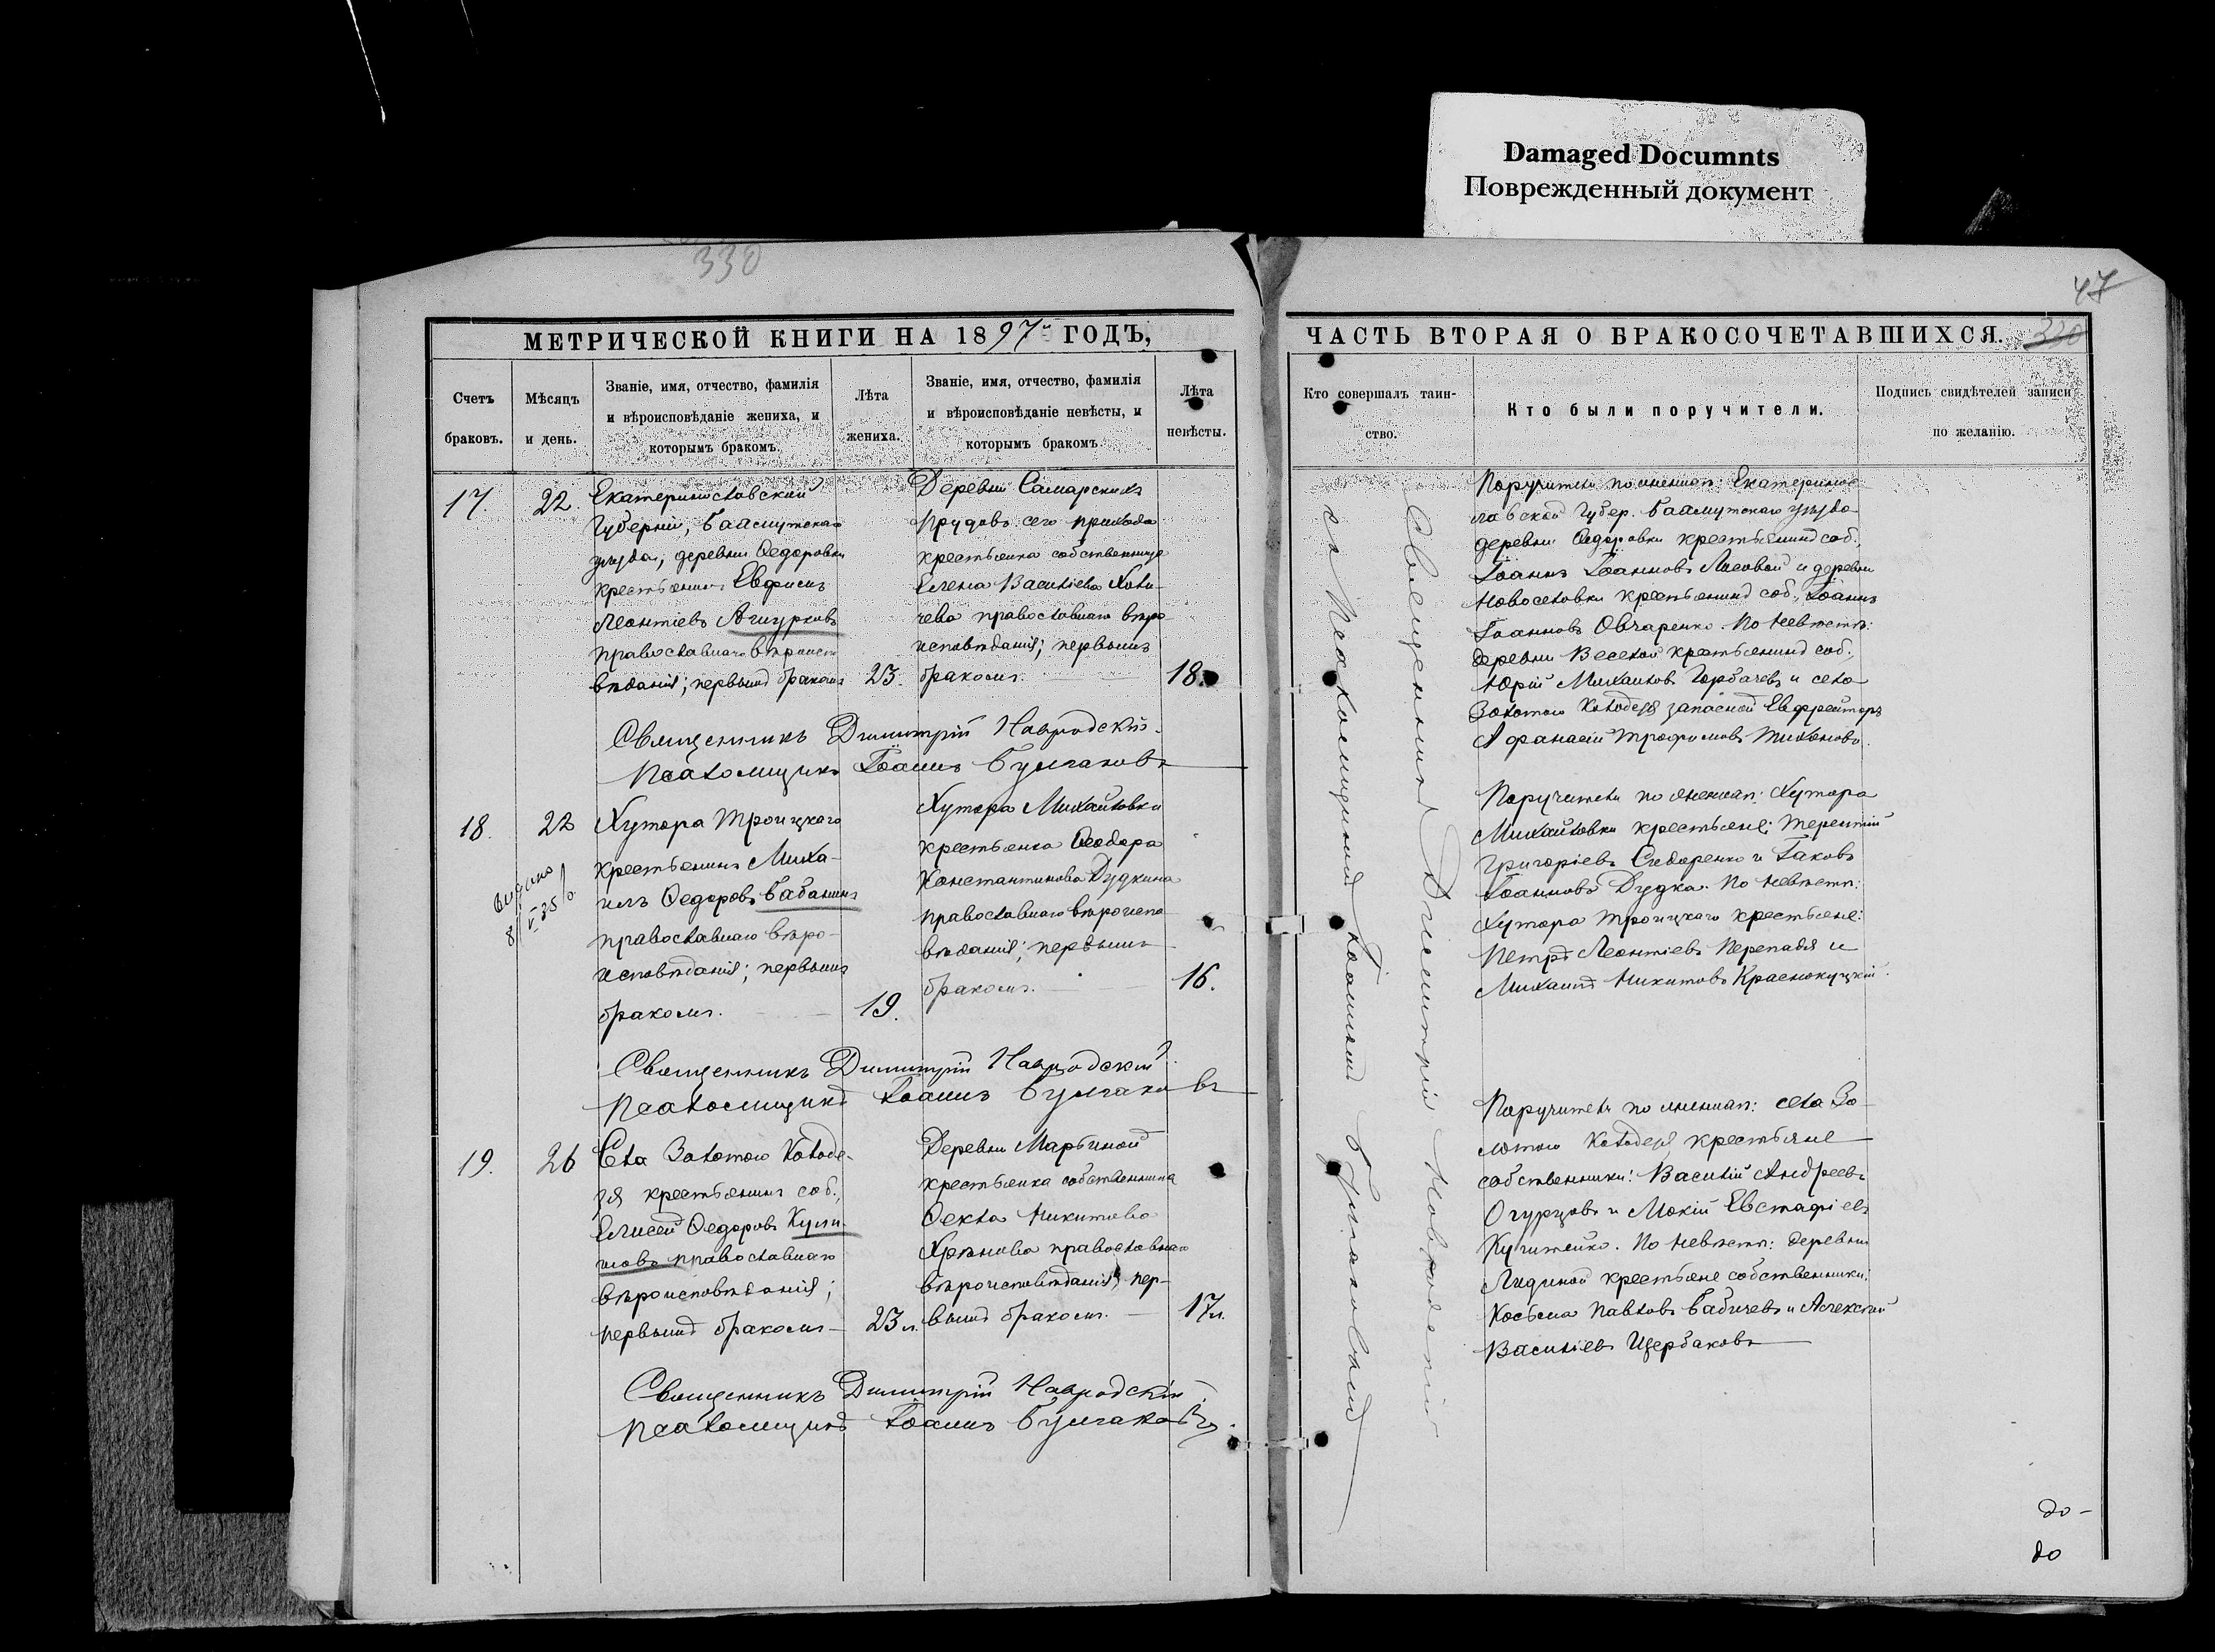 Damaged Documnts
Поврежденный документ
330
47
МЕТРИЧЕСКОЙ КНИГИ НА 1897й ГОДЪ,
Счетъ браковъ.
Мѣсяцъ и день.
Званіе, имя, отчество, фамилія
и вѣроисповѣданіе жениха, и
которымъ бракомъ.
Лѣта
жениха.
Званіе, имя, отчество, фамилія
и вѣроисповѣданіе невѣсты, и
которымъ бракомъ.
Лѣта
невѣсты.
17. 22.
Екатеринославской
Губерніи, Бахмутскаго
уѣзда, деревни Ѳедоровки
крестьянинъ Евфимъ
Леонтіевъ
православнаго вѣроиспо
вѣданія; первымъ бракомъ 23.
Деревни Самарскихъ
Прудовъ сего прихода
крестьянка собственница
Елена Василіева
православнаго вѣро
исповѣданія; первымъ
бракомъ. 18.
Священникъ Димитрій Навродскій.
Псаломщикъ Іоаннъ Булгаковъ
18. 22
Хутора Троицкаго
крестьянинъ Миха-
илъ Ѳедоровъ Бабанинъ
православнаго вѣро-
исповѣданія; первымъ
бракомъ. 19.
Хутора Михайловки
крестьянка Ѳеодора
Константинова Дудкина
православнаго вѣроиспо
вѣданія; первымъ
бракомъ. 16.
Священникъ Димитрій Навродскій
Псаломщикъ Іоаннъ Булгаковъ
19. 26
Села Золотого Колоде-
зя крестьянинъ соб.,
Елисей Ѳедоровъ
православнаго
вѣроисповѣданія;
первымъ бракомъ 23 л.
Деревни Марьиной
крестьянка собственница
Ѳекла Никитова
Хрѣнова православнаго
вѣроисповѣданія, пер-
вымъ бракомъ. 17 л.
Священникъ Димитрій Навродскій
Псаломщикъ Іоаннъ Булгаковъ
ЧАСТЬ ВТОРАЯ О БРАКОСОЧЕТАВШИХСЯ. 330
Кто совершалъ таин-
ство.
Кто были поручители.
Подпись свидѣтелей записи
по желанію.
Священникъ Димитрій Навродскій
съ Псаломщикомъ Іоанномъ Булгаковымъ
Поручители по женихѣ: Екатеринос
лавской Губер. Бахмутскаго уѣзда
деревни Ѳедоровки крестьянинъ соб.,
Іоаннъ Іоанновъ Лисовой и деревни
Новоселовки крестьянинъ соб., Іоаннъ
Іоанновъ Овчаренко. По невѣстѣ:
деревни Веселой крестьянинъ соб.,
Юрій Михаиловъ Горбачевъ и села
Золотого Колодезя запасной Ефрейторъ
Афанасій Трофимовъ Тихоновъ.
Поручители по женихѣ: Хутора
Михайловки крестьяне: Терентій
Григоріевъ Сидоренко и Іаковъ
Іоанновъ Дудка. По невѣстѣ:
Хутора Троицкаго крестьяне:
Петръ Леонтіевъ Перепадя и
Михаилъ Никитовъ Краснокутскій.
Поручители по женихѣ: села Зо-
лотого Колодезя крестьяне
собственники: Василій Андреевъ
Огурцовъ и Мокій Евстафіевъ
По невѣстѣ: деревни
Лидиной крестьяне собственники:
Косьма Павловъ Бабичевъ и Алексѣй
Василіевъ Щербаковъ
до -
до